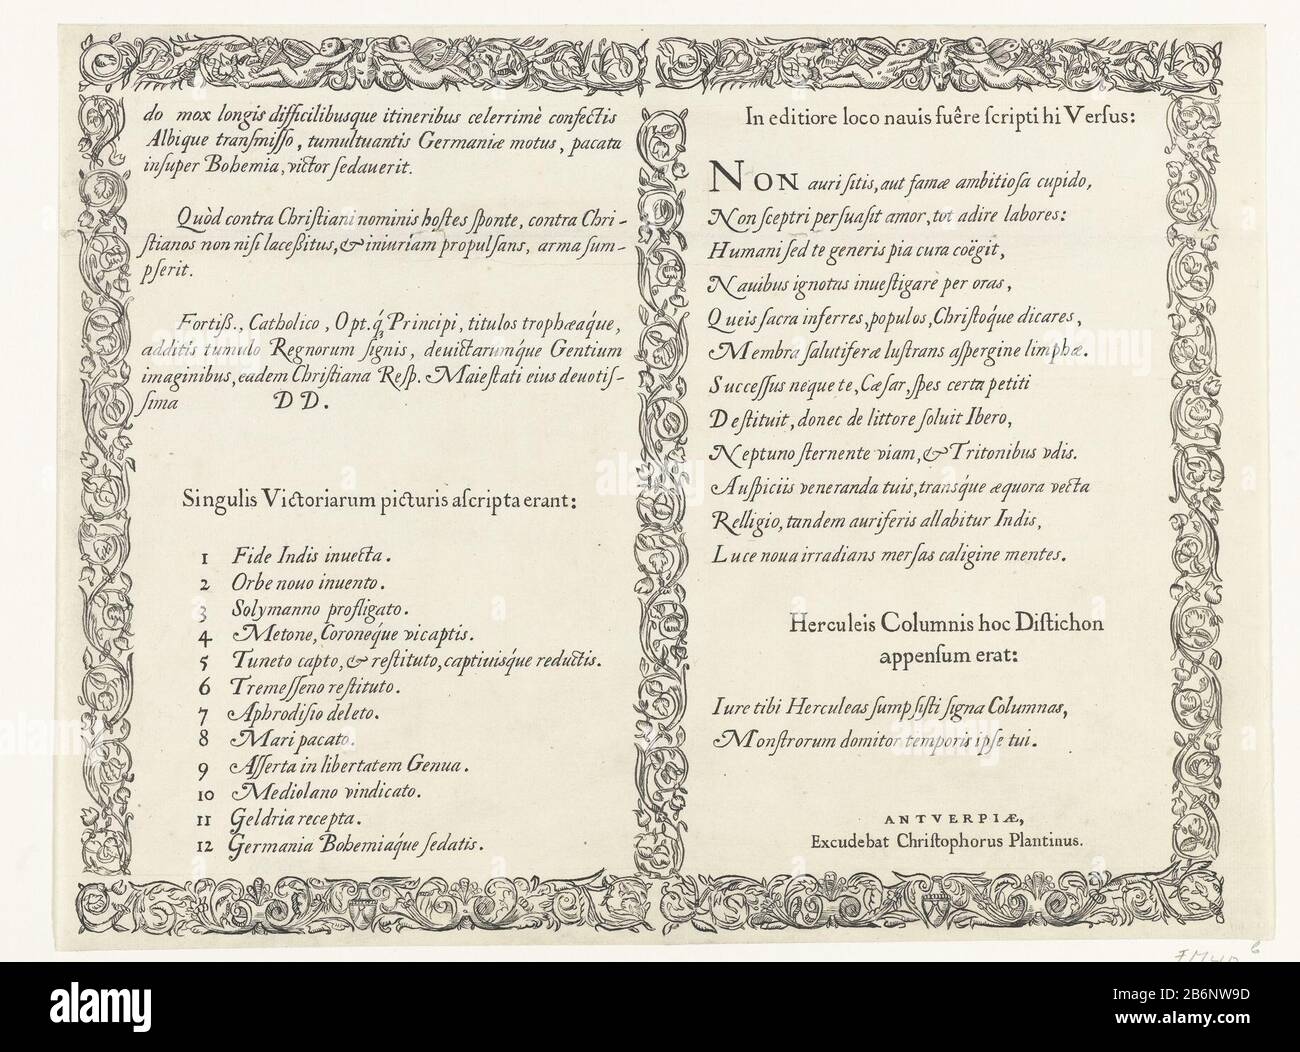 do mox longis difficilibusque itineribus celerrimè confectis
Albique transmisso, tumultuantis Germaniæ motus, pacata
insuper Bohemia, victor sedauerit.
Quòd contra Christiani nominis hostes sponte, contra Chri-
stianos non nisi laceßitus, & iniuriam propulsans, arma sum-
pserit.
Fortiß., Catholico, Opt. q́; Principi, titulos trophæaq́ue,
additis tumulo Regnorum signis, deuictarumq́ue Gentium
imaginibus, eadem Christiana Resp. Maiestati eius deuotis-
sima D D.
Singulis Victoriarum picturis ascripta erant:
1 Fide Indis inuecta.
2 Orbe nouo inuento.
3 Solymanno profligato.
4 Metone, Coroneq́ue vi captis.
5 Tuneto capto, & restituto, captiuisq́ue reductis.
6 Tremesseno restituto.
7 Aphrodisio deleto.
8 Mari pacato.
9 Asserta in libertatem Genua.
10 Mediolano vindicato.
11 Geldria recepta.
12 Germania Bohemiaq́ue sedatis.
In editiore loco nauis fuêre scripti hi Versus:
NON auri sitis, aut famæ ambitiosa cupido,
Non sceptri persuasit amor, tot adire labores:
Humani sed te generis pia cura coëgit,
Nauibus ignotas inuestigare per oras,
Queis sacra inferres, populos, Christoq́ue dicares,
Membra salutiferæ lustrans aspergine limphæ.
Successus neque te, Cæsar, spes certa petiti
Destituit, donec de littore soluit Ibero,
Neptuno sternente viam, & Tritonibus vdis.
Auspiciis veneranda tuis, transq́ue æquora vecta
Relligio, tandem auriferis allabitur Indis,
Luce noua irradians mersas caligine mentes.
Herculeis Columnis hoc Distichon
appensum erat:
Iure tibi Herculeas sumpsisti signa Columnas,
Monstrorum domitor temporis ipse tui.
ANTVERPIÆ,
Excudebat Christophorus Plantinus.
alamy
Image ID: 2B6NW9D
www.alamy.com